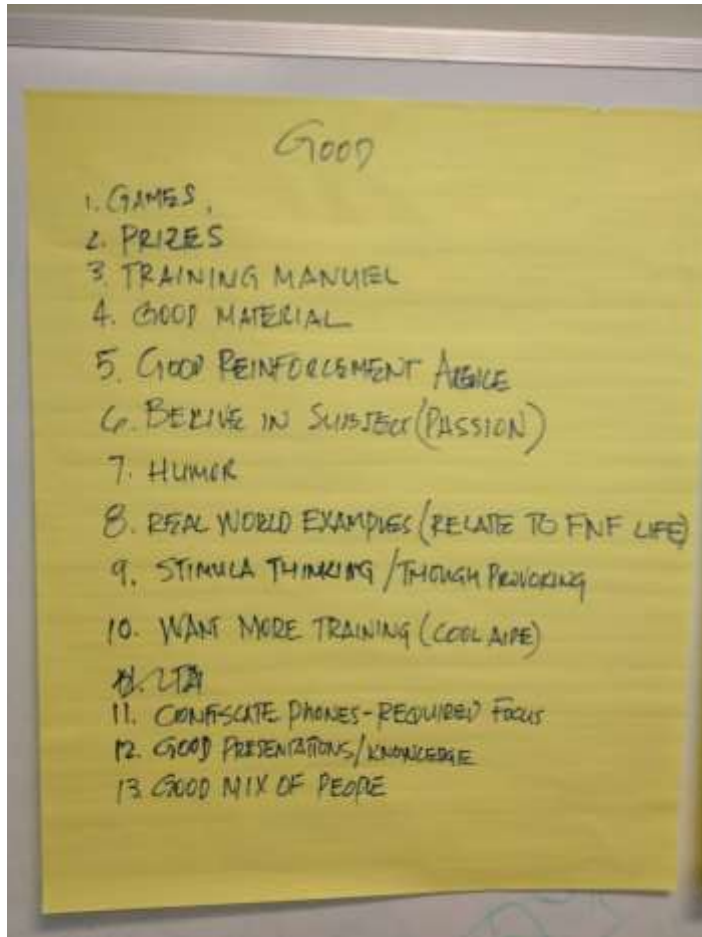 GOOD
1. GAMES.
2. PRIZES
3. TRAINING MANUEL
4. GOOD MATERIAL
5. GOOD REINFORCEMENT
6. BELIVE IN SUBJECT (PASSION)
7. HUMOR
8. REAL WORLD EXAMPLES (RELATE TO FNF LIFE)
9. STIMULA THINKING / THOUGH PROVOKING
10. WANT MORE TRAINING (COOL AIDE)
11. CONFISCATE PHONES - REQUIRED FOCUS
12. GOOD PRESENTATIONS / KNOWLEDGE
13. GOOD MIX OF PEOPLE